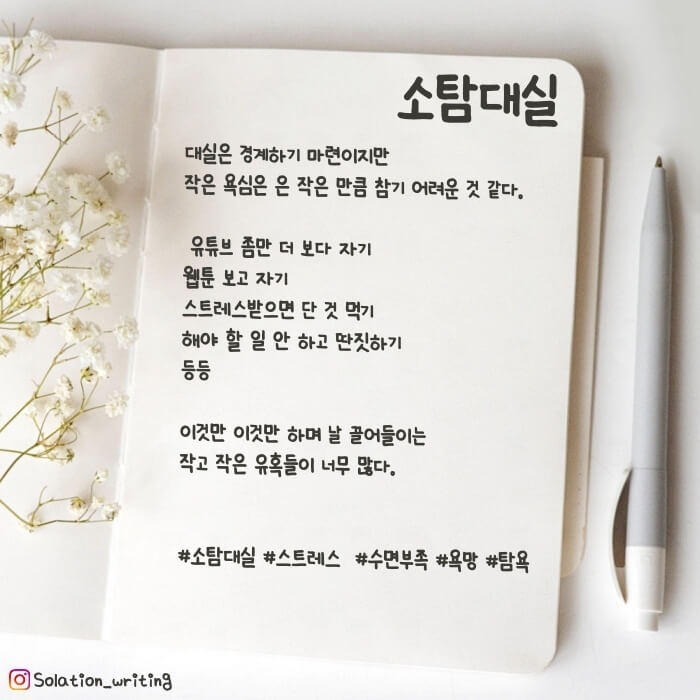 소탐대실
대실은 경계하기 마련이지만
작은 욕심은 은 작은 만큼 참기 어려운 것 같다.
유튜브 좀만 더 보다 자기
웹툰 보고 자기
스트레스받으면 단 것 먹기
해야 할 일 안 하고 딴짓하기
등등
이것만 이것만 하며 날 끌어들이는
작고 작은 유혹들이 너무 많다.
#소탐대실 #스트레스 #수면부족 #욕망 #탐욕
Solation_writing